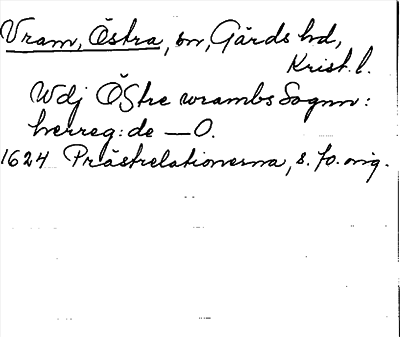 Vram, Östra, sn, Gärds hd,
Krist. l.
Wdj Östre wrambs Sognn:
herreg: de — O.
1624 Prästrelationerna, s. 70. orig.